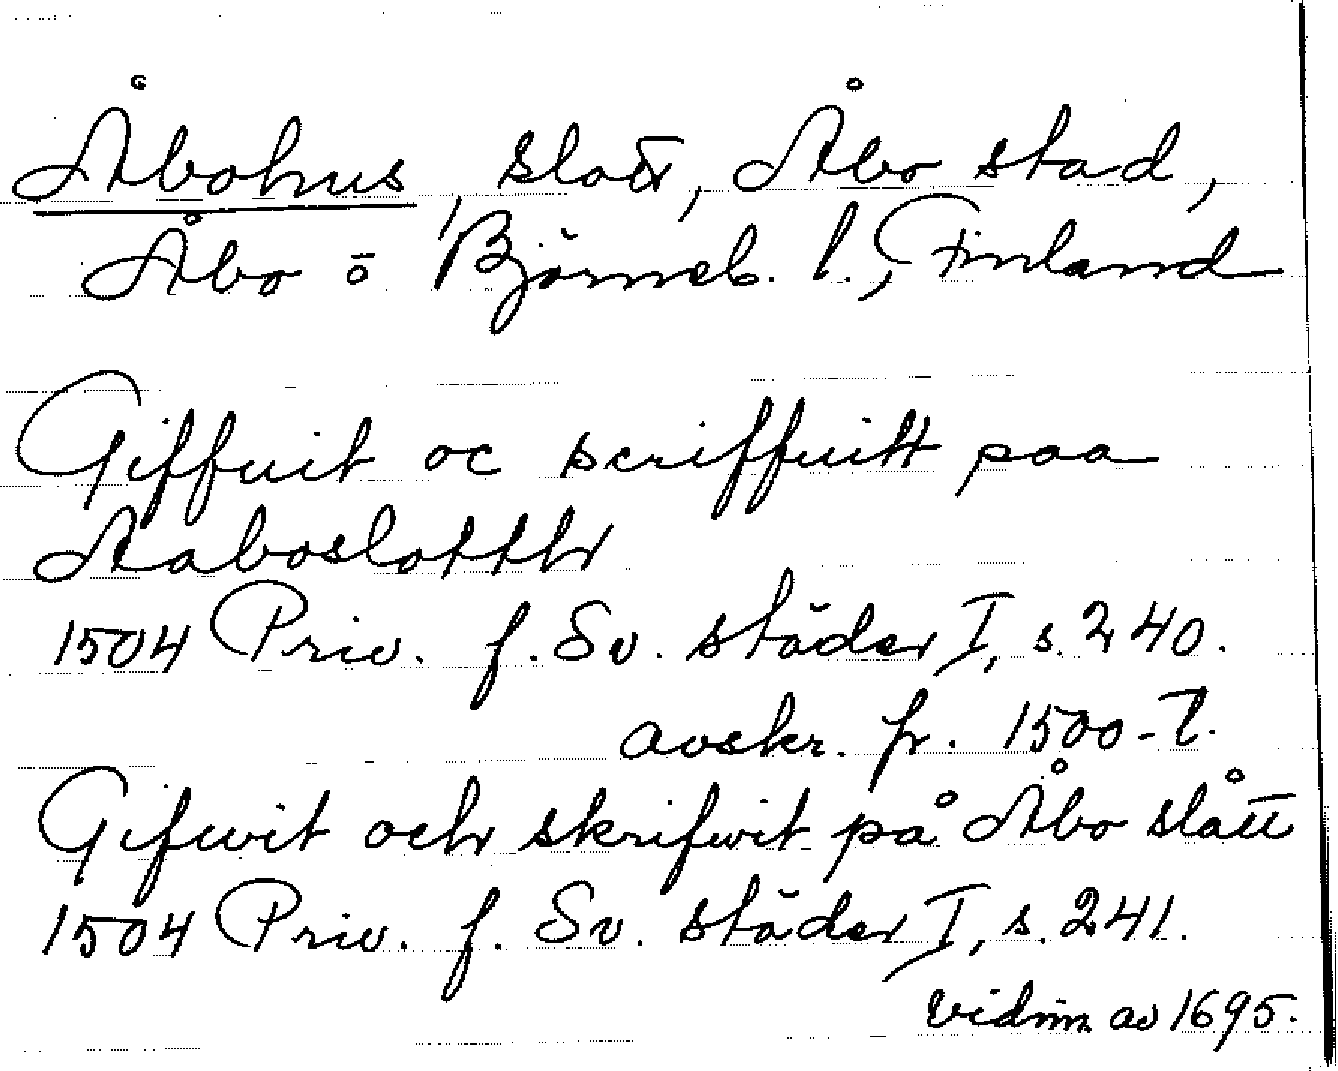 Åbohus, slott, Åbo stad,
Åbo o Björneb. l., Finland
Giffuit oc scriffuitt paa
Aaboslotth
1504 Priv. f. Sv. städer I, s. 240.
avskr. fr. 1500-t.
Gifwit och skrifwit på Åbo slått
1504 Priv. f. Sv. städer I, s. 241.
vidim. av 1695.